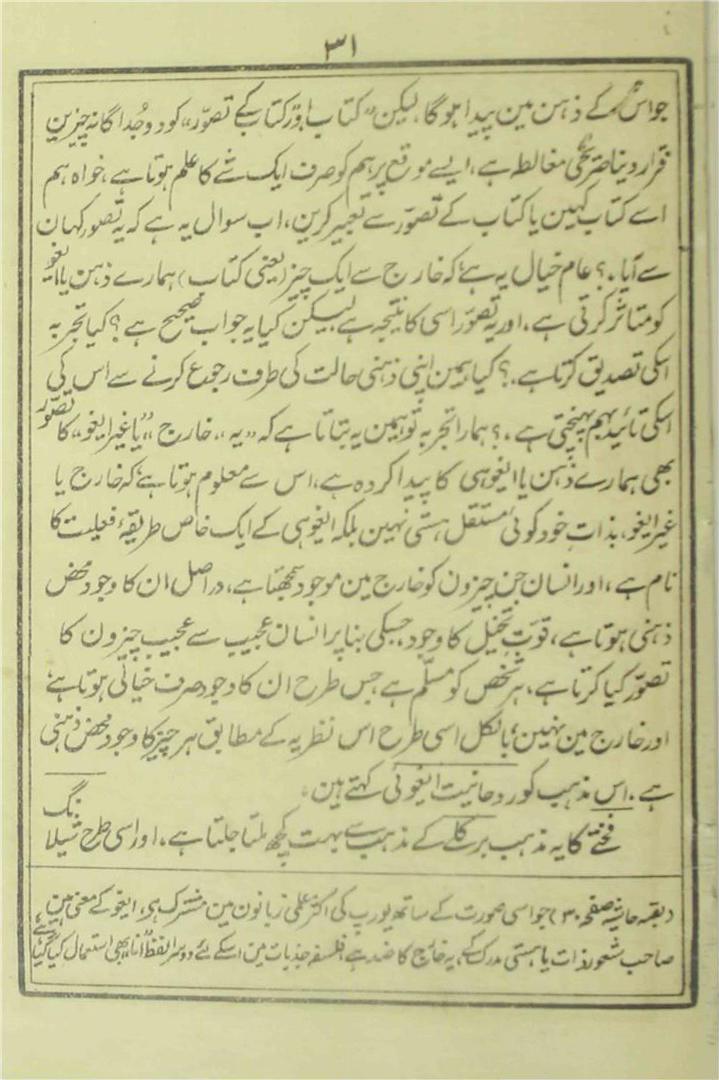 ۳۱
جو اس کے ذہن مین پیدا ہوگا، لیکن "کتاب اور کتاب کے تصوّر" کو دو جُداگانہ چیزین
قرار دینا صریحی مغالطہ ہے، ایسے موقع پر ہم کو صرف ایک شے کا علم ہوتا ہے، خواہ ہم
اسے کتاب کہین یا کتاب کے تصوّر سے تعبیر کرین، اب سوال یہ ہے کہ یہ تصوّر کہان
سے آیا۔؟ عام خیال یہ ہے کہ خارج سے ایک چیز (یعنی کتاب) ہمارے ذہن یا ایغو
کو متاثر کرتی ہے، اور یہ تصوّر اسی کا نتیجہ ہے لیکن کیا یہ جواب صحیح ہے؟ کیا تجربہ
اسکی تصدیق کرتا ہے۔؟ کیا ہمین اپنی ذہنی حالت کی طرف رجوع کرنے سے اس کی
اسکی تائید بہم پہنچتی ہے۔؟ ہمارا تجربہ تو ہمین یہ بتاتا ہے کہ "یہ"، خارج "یا غیر ایغو" کا تصوّر
بھی ہمارے ذہن یا ایغو ہی کا پیدا کردہ ہے، اس سے معلوم ہوتا ہے کہ خارج یا
غیر ایغو، بذات خود کوئی مستقل ہستی نہین بلکہ ایغو ہی کے ایک خاص طریقۂ فعلیت کا
نام ہے، اور انسان جن چیزون کو خارج مین موجود سمجھتا ہے، در اصل ان کا وجود محض
ذہنی ہوتا ہے، قوتِ تخیّل کا وجود، جسکی بنا پر انسان عجیب سے عجیب چیزون کا
تصوّر کیا کرتا ہے، ہر شخص کو مسلّم ہے جس طرح ان کا وجود صرف خیالی ہوتا ہے
اور خارج مین نہین، بالکل اسی طرح اس نظریہ کے مطابق ہر چیز کا وجود محض ذہنی
ہے۔ اس مذہب کو روحانیت ایغوئی کہتے ہین۔
فختے کا یہ مذہب برکلے کے مذہب سے بہت کچھ ملتا جلتا ہے، اور اسی طرح شیلانگ
(بقیہ حاشیہ صفحہ ۳۰) جو اسی صورت کے ساتھ یورپ کی اکثر علمی زبانون مین مشترک ہے، ایغو کے معنی مین
صاحب شعور ذات یا ہستی مدرک کے، یہ خارج کا ضد ہے، فلسفہ جذبات مین اسکے لئے دوسرا لفظ "انا" بھی استعمال کیا گیا ہے